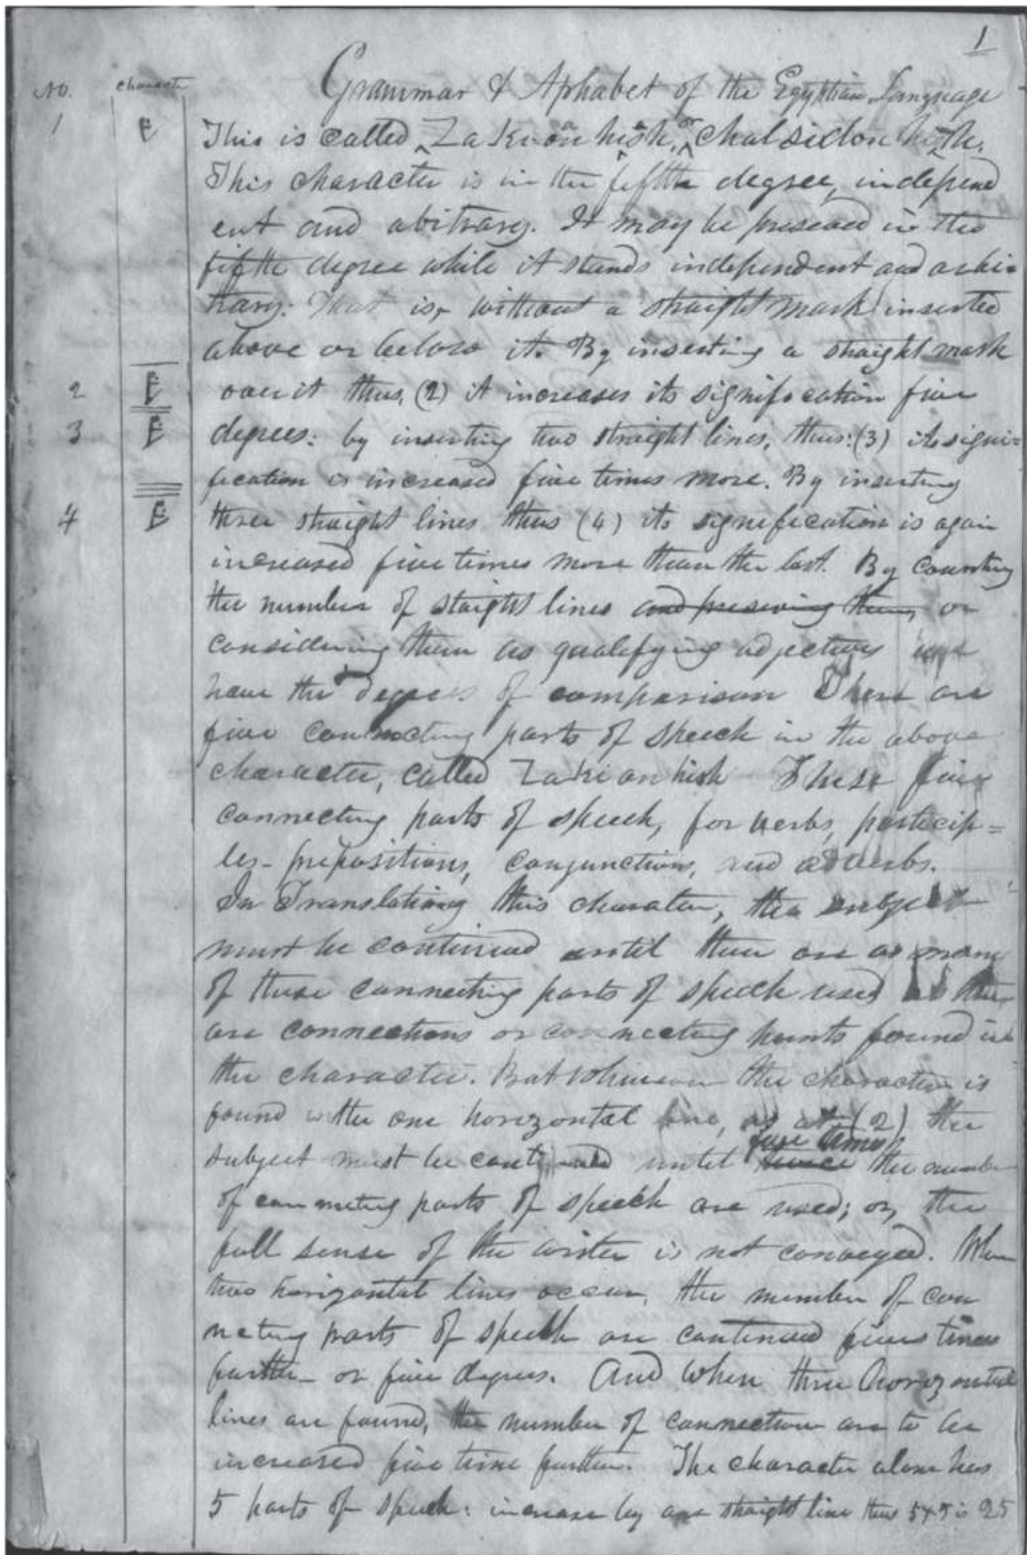 1
Grammar & Aphabet of the Egyptian Language
No. character
1 This is called Za Ki on hish, or chal sidon hish.
This character is in the fifth degree, independ
ent and abitrary. It may be preseved in the
fifth degree while it stands independent and arbi-
trary: That is, without a straight mark inserted
above or below it. By inserting a straight mark
2 over it thus, (2) it increases its signification five
3 degrees: by inserting two straight lines, thus: (3) its signi=
fication is increased five times more. By inserting
4 three straight lines thus (4) its signification is again
increased five times more than the last. By counting
the number of staight lines and preserving them, or
considering them as qualifying adjectives we
have the degrees of comparison There are
five connecting parts of speech in the above
character, called Za ki on hish These five
connecting parts of speech, for verbs, particip=
les- prepositions, conjunctions, and adverbs.
In Translating this character, the subject
must be continued until there are as many
of these connecting parts of speech used as there
are connections or connecting points found in
the character. But whenever the character is
found with one horizontal line, as at (2) the
subject must be continued until five times the number
of connecting parts of speech are used; or, the
full sense of the writer is not conveyed. When
two horizontal lines occur, the number of con
necting parts of speech are continued five times
further- or five degrees. And when three horizontal
lines are found, the number of connections are to be
increased five time further. The character alone has
5 parts of speech: increase by one straight line thus 5x5 is 25